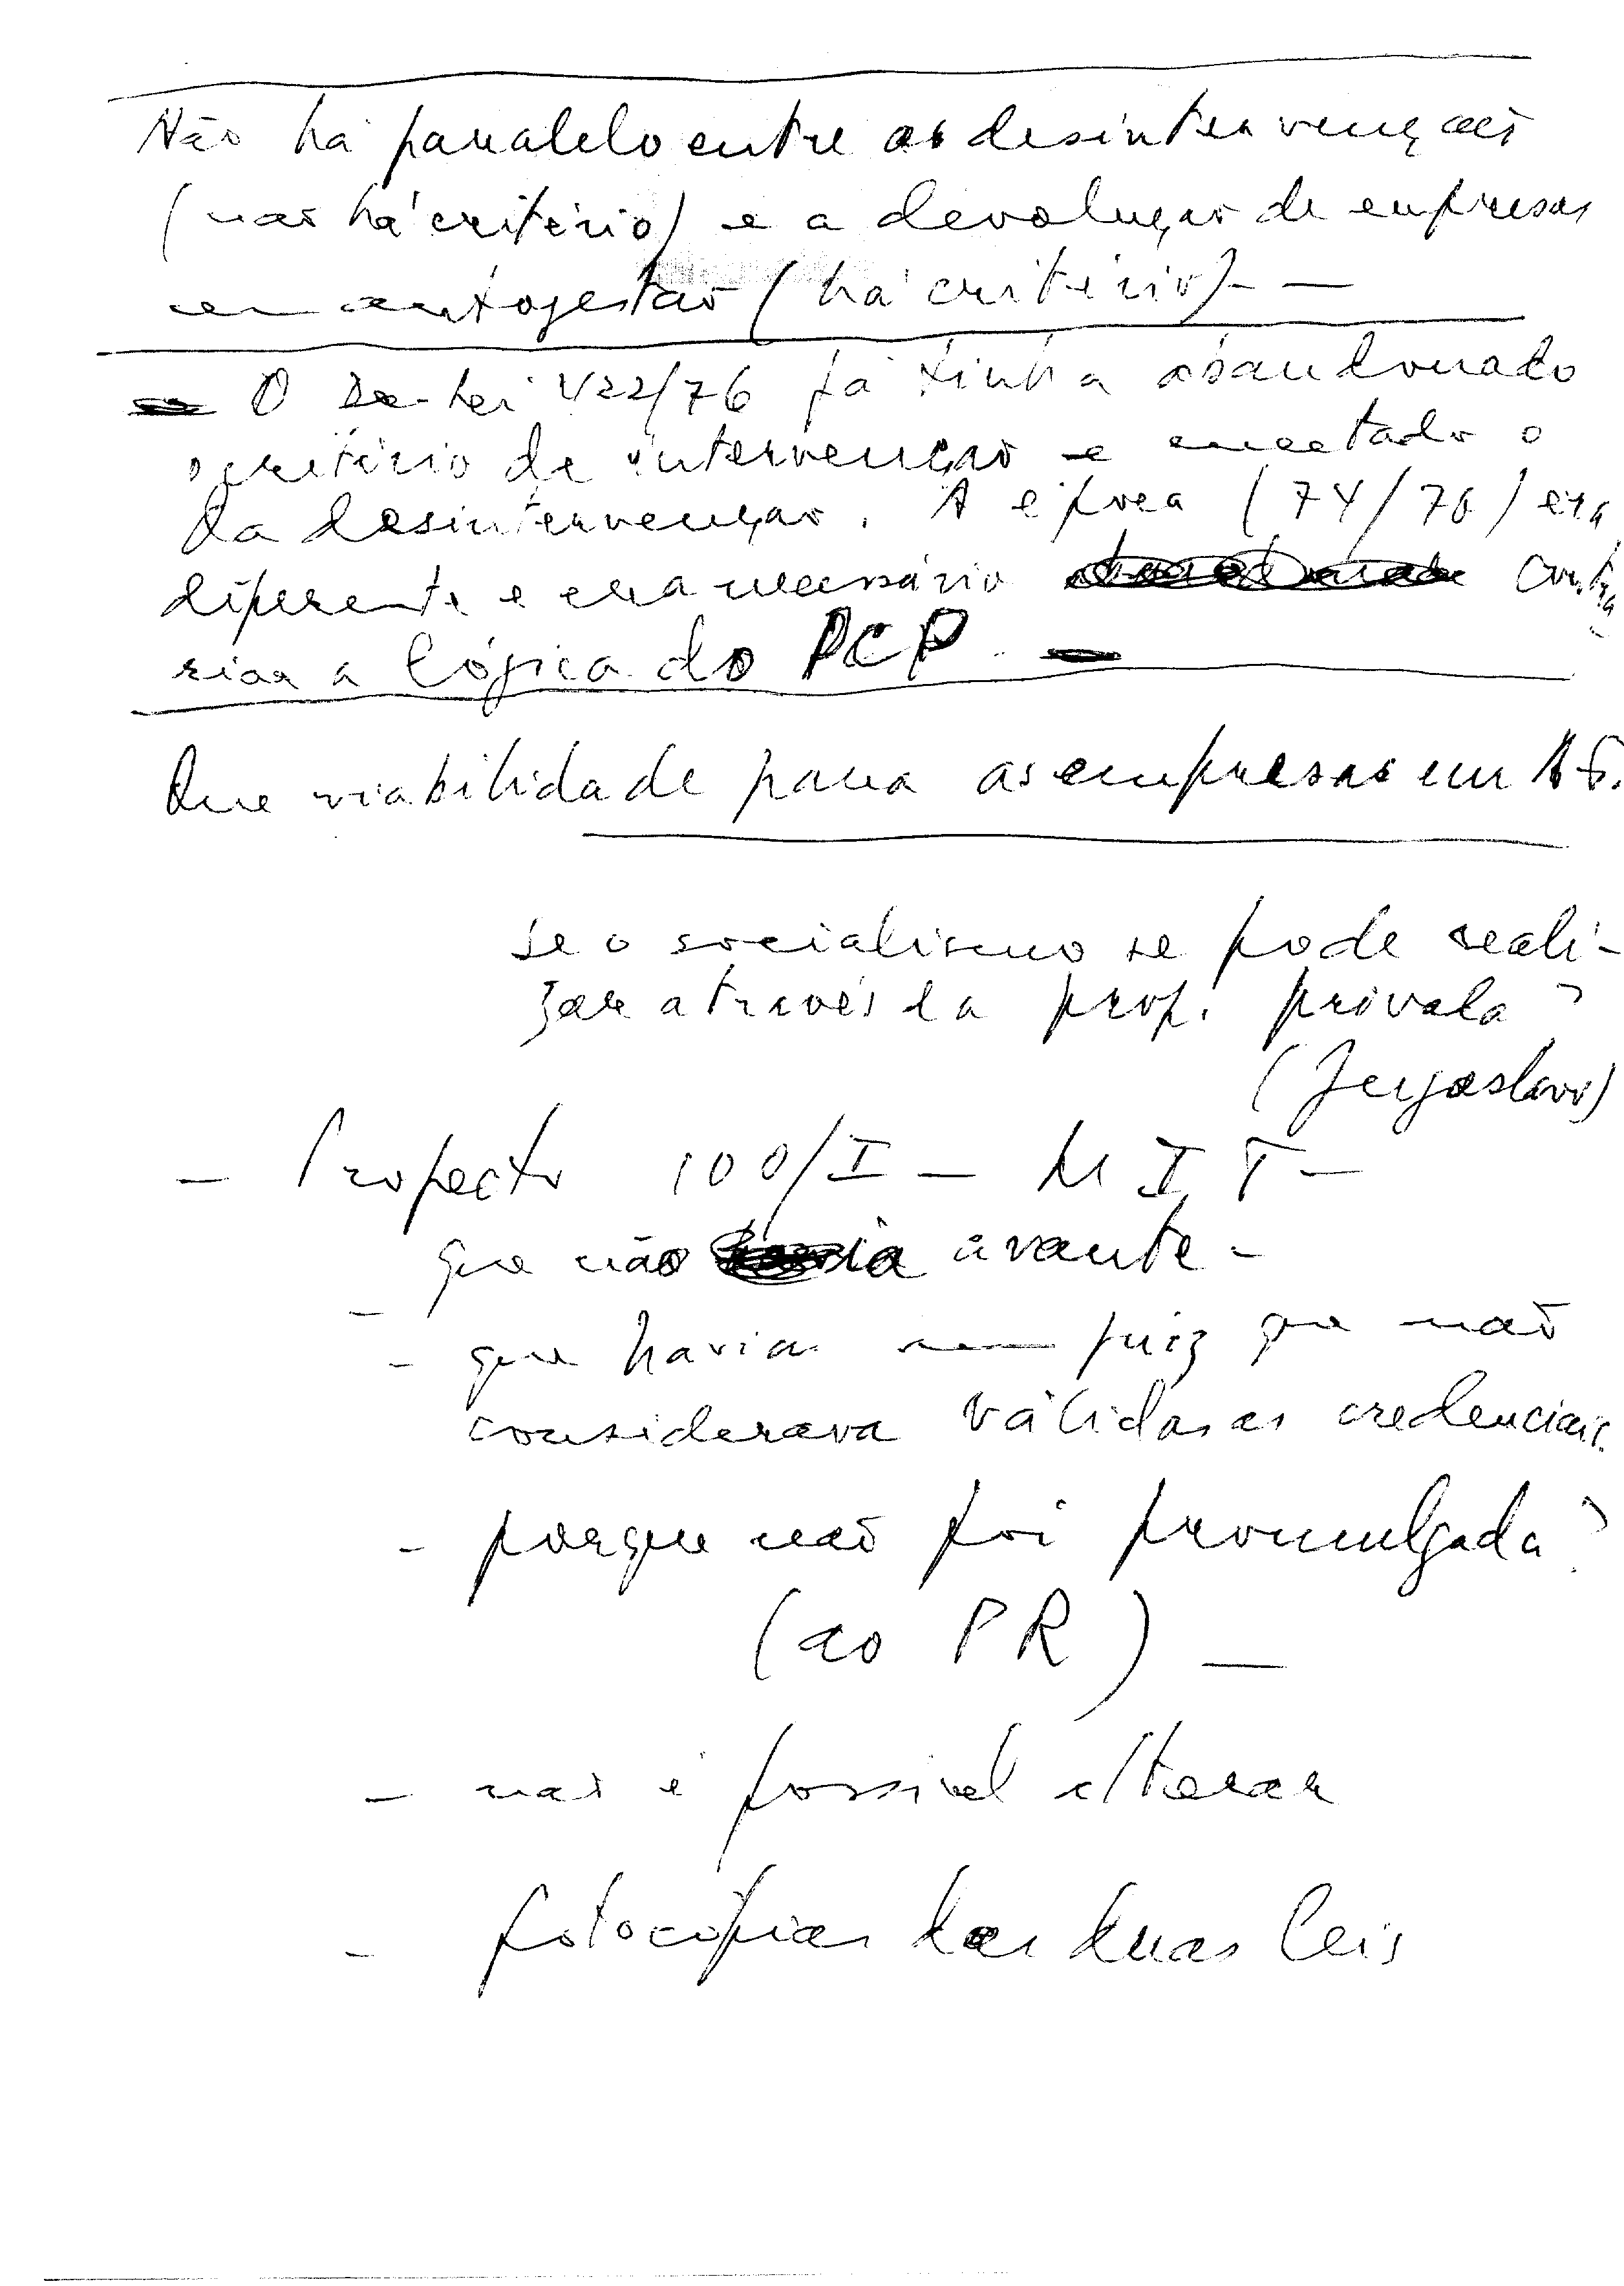 Não há paralelo entre as desintervenções
(não há critério) e a devolução de empresas
em autogestão (há critério) - —
— O De-Lei 422/76 já tinha abandonado
o critério de intervenção e encetado o
da desintervenção. A época (74/76) era
diferente e era necessário contra
riar a lógica do PCP. —
Que viabilidade para as empresas em AG.
se o socialismo se pode reali-
zar através da prop. privada?
(Jugoslávi)
— Projecto 100/I — M I T —
que não ia avante -
- que havia um juiz que não
considerava válidas as credenciais.
- porque não foi promulgada?
(ao PR) —
- não é possível alterar
- fotocópias das duas leis